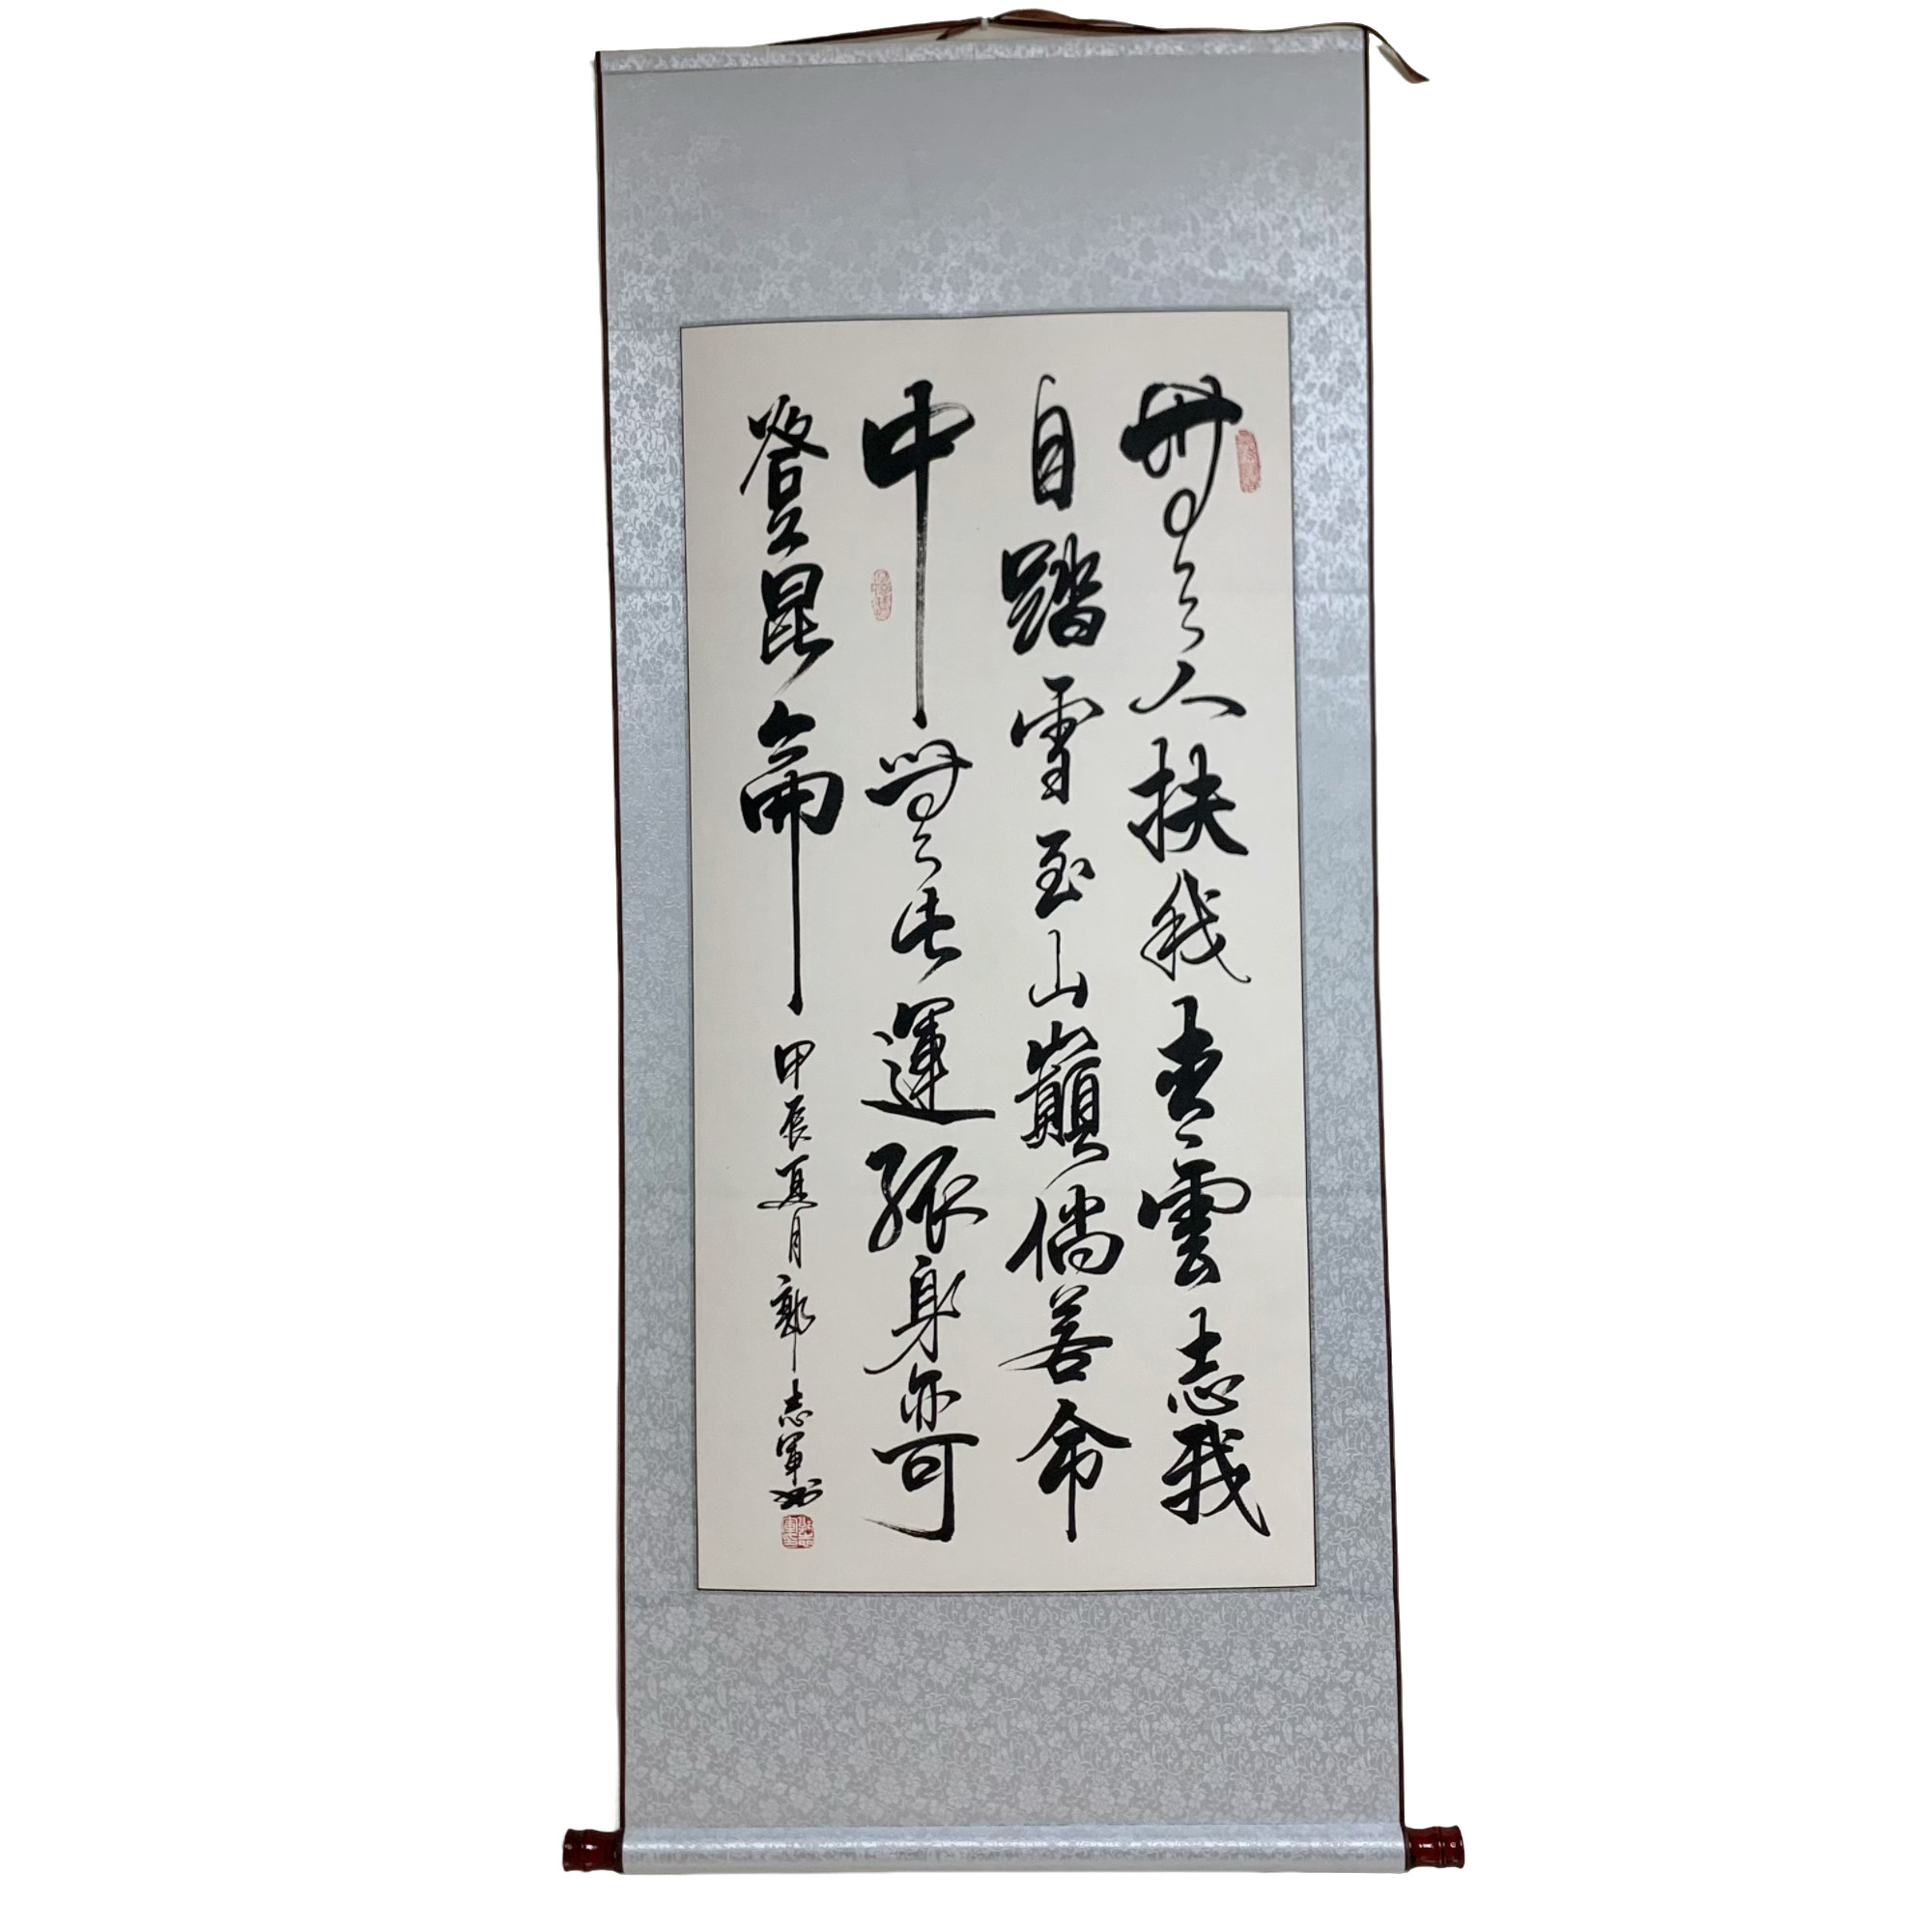 無人扶我青雲志我
自踏雪至山巔倘若命
中無此運孤身亦可
登昆侖 甲辰夏月郭志軍書